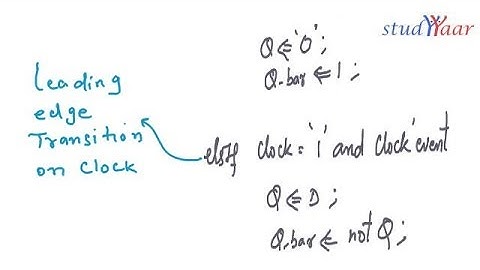 studYYaar
Q <= '0';
Q-bar <= 1;
Leading
edge
Transition
on Clock
elsif Clock = '1' and Clock'event
Q <= D;
Q-bar <= not Q;